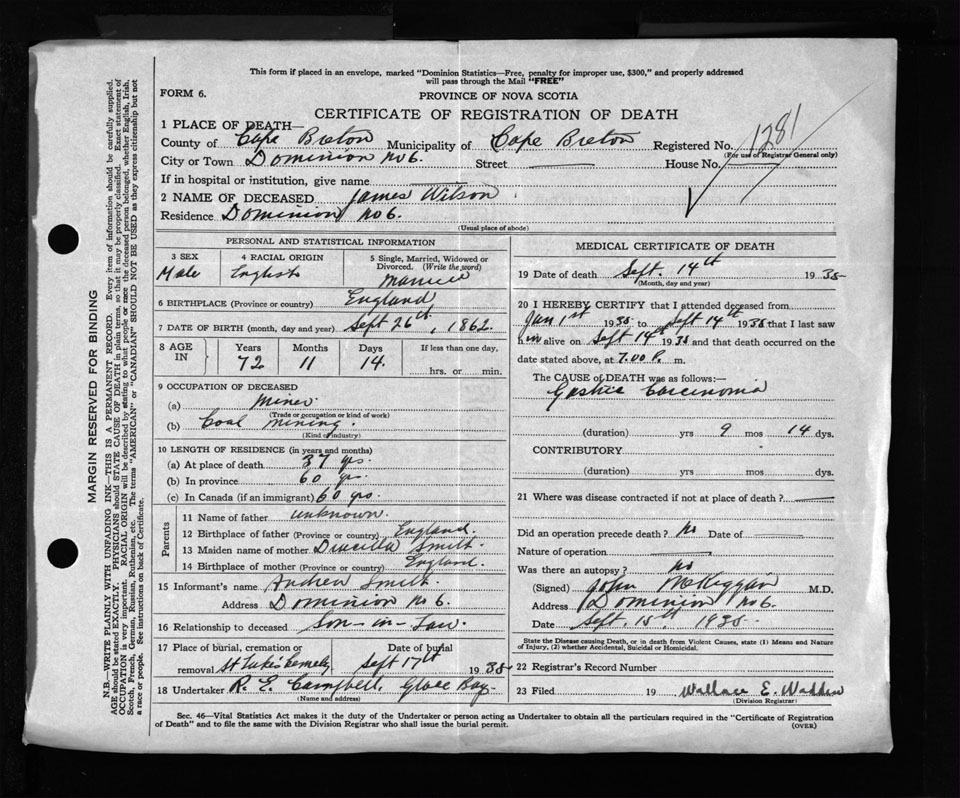 This form if placed in an envelope, marked "Dominion Statistics—Free, penalty for improper use, $300," and properly addressed
will pass through the Mail "FREE"
FORM 6.
PROVINCE OF NOVA SCOTIA
CERTIFICATE OF REGISTRATION OF DEATH
1281
1 PLACE OF DEATH—
County of Cape Breton Municipality of Cape Breton Registered No.
(For use of Registrar General only)
City or Town Dominion No 6. Street House No.
If in hospital or institution, give name
2 NAME OF DECEASED James Wilson
Residence Dominion No 6.
(Usual place of abode)
PERSONAL AND STATISTICAL INFORMATION
3 SEX 4 RACIAL ORIGIN 5 Single, Married, Widowed or
Divorced. (Write the word)
Male English Married
6 BIRTHPLACE (Province or country) England
7 DATE OF BIRTH (month, day and year) Sept 26th, 1862
8 AGE IN Years Months Days If less than one day,
72 11 14. hrs. or min.
9 OCCUPATION OF DECEASED
(a) Miner
(Trade or occupation or kind of work)
(b) Coal Mining.
(Kind of industry)
10 LENGTH OF RESIDENCE (in years and months)
(a) At place of death 37 yrs.
(b) In province 60 yrs.
(c) In Canada (if an immigrant) 60 yrs.
Parents
11 Name of father unknown.
12 Birthplace of father (Province or country) England.
13 Maiden name of mother Druscilla Smith.
14 Birthplace of mother (Province or country) England.
15 Informant's name Andrew Smith.
Address Dominion No 6.
16 Relationship to deceased Son-in-Law
17 Place of burial, cremation or Date of burial
removal St Lukes Cemetery Sept 17th 1935
18 Undertaker R. E. Campbell, Glace Bay
(Name and address)
MEDICAL CERTIFICATE OF DEATH
19 Date of death Sept. 14th 1935
(Month, day and year)
20 I HEREBY CERTIFY that I attended deceased from
Jan 1st 1935 to Sept 14th 1935 that I last saw
him alive on Sept 14th 1935 and that death occurred on the
date stated above, at 7.00 P. m.
The CAUSE of DEATH was as follows:—
Gastric Carcinoma
(duration) yrs 9 mos 14 dys.
CONTRIBUTORY
(duration) yrs. mos. dys.
21 Where was disease contracted if not at place of death?
Did an operation precede death? No Date of
Nature of operation
Was there an autopsy? No
(Signed) John McKiggan M.D.
Address Dominion No 6.
Date Sept. 15th 1935
State the Disease causing Death, or in death from Violent Causes, state (1) Means and Nature
of Injury, (2) whether Accidental, Suicidal or Homicidal.
22 Registrar's Record Number
23 Filed 19 Wallace E. Wadden
(Division Registrar)
Sec. 46—Vital Statistics Act makes it the duty of the Undertaker or person acting as Undertaker to obtain all the particulars required in the "Certificate of Registration
of Death" and to file the same with the Division Registrar who shall issue the burial permit.
(OVER)
MARGIN RESERVED FOR BINDING
N.B.—WRITE PLAINLY WITH UNFADING INK—THIS IS A PERMANENT RECORD. Every item of information should be carefully supplied.
AGE should be stated EXACTLY. PHYSICIANS should STATE CAUSE OF DEATH in plain terms, so that it may be properly classified. Exact statement of
OCCUPATION is very important. RACIAL ORIGIN will be described by stating to what people or race the deceased person belonged, whether English, Irish,
Scotch, French, German, Russian, Ruthenian, etc. The terms "AMERICAN" or "CANADIAN" SHOULD NOT BE USED as they express citizenship but not
a race or people. See instructions on back of Certificate.